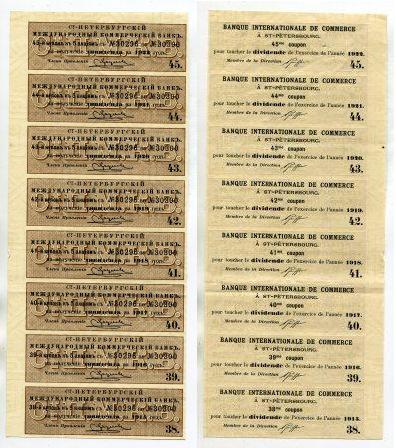 С.-ПЕТЕРБУРГСКІЙ
МЕЖДУНАРОДНЫЙ КОММЕРЧЕСКІЙ БАНКЪ.
45-й купонъ къ 5 акціямъ съ №30296 по №30300
на полученіе дивиденда за 1922 годъ.
Членъ Правленія
45.
С.-ПЕТЕРБУРГСКІЙ
МЕЖДУНАРОДНЫЙ КОММЕРЧЕСКІЙ БАНКЪ.
44-й купонъ къ 5 акціямъ съ №30296 по №30300
на полученіе дивиденда за 1921 годъ.
Членъ Правленія
44.
С.-ПЕТЕРБУРГСКІЙ
МЕЖДУНАРОДНЫЙ КОММЕРЧЕСКІЙ БАНКЪ.
43-й купонъ къ 5 акціямъ съ №30296 по №30300
на полученіе дивиденда за 1920 годъ.
Членъ Правленія
43.
С.-ПЕТЕРБУРГСКІЙ
МЕЖДУНАРОДНЫЙ КОММЕРЧЕСКІЙ БАНКЪ.
42-й купонъ къ 5 акціямъ съ №30296 по №30300
на полученіе дивиденда за 1919 годъ.
Членъ Правленія
42.
С.-ПЕТЕРБУРГСКІЙ
МЕЖДУНАРОДНЫЙ КОММЕРЧЕСКІЙ БАНКЪ.
41-й купонъ къ 5 акціямъ съ №30296 по №30300
на полученіе дивиденда за 1918 годъ.
Членъ Правленія
41.
С.-ПЕТЕРБУРГСКІЙ
МЕЖДУНАРОДНЫЙ КОММЕРЧЕСКІЙ БАНКЪ.
40-й купонъ къ 5 акціямъ съ №30296 по №30300
на полученіе дивиденда за 1917 годъ.
Членъ Правленія
40.
С.-ПЕТЕРБУРГСКІЙ
МЕЖДУНАРОДНЫЙ КОММЕРЧЕСКІЙ БАНКЪ.
39-й купонъ къ 5 акціямъ съ №30296 по №30300
на полученіе дивиденда за 1916 годъ.
Членъ Правленія
39.
С.-ПЕТЕРБУРГСКІЙ
МЕЖДУНАРОДНЫЙ КОММЕРЧЕСКІЙ БАНКЪ.
38-й купонъ къ 5 акціямъ съ №30296 по №30300
на полученіе дивиденда за 1915 годъ.
Членъ Правленія
38.
BANQUE INTERNATIONALE DE COMMERCE
À ST-PÉTERSBOURG.
45me coupon
pour toucher le dividende de l'exercice de l'année 1922.
Membre de la Direction
45.
BANQUE INTERNATIONALE DE COMMERCE
À ST-PÉTERSBOURG.
44me coupon
pour toucher le dividende de l'exercice de l'année 1921.
Membre de la Direction
44.
BANQUE INTERNATIONALE DE COMMERCE
À ST-PÉTERSBOURG.
43me coupon
pour toucher le dividende de l'exercice de l'année 1920.
Membre de la Direction
43.
BANQUE INTERNATIONALE DE COMMERCE
À ST-PÉTERSBOURG.
42me coupon
pour toucher le dividende de l'exercice de l'année 1919.
Membre de la Direction
42.
BANQUE INTERNATIONALE DE COMMERCE
À ST-PÉTERSBOURG.
41me coupon
pour toucher le dividende de l'exercice de l'année 1918.
Membre de la Direction
41.
BANQUE INTERNATIONALE DE COMMERCE
À ST-PÉTERSBOURG.
40me coupon
pour toucher le dividende de l'exercice de l'année 1917.
Membre de la Direction
40.
BANQUE INTERNATIONALE DE COMMERCE
À ST-PÉTERSBOURG.
39me coupon
pour toucher le dividende de l'exercice de l'année 1916.
Membre de la Direction
39.
BANQUE INTERNATIONALE DE COMMERCE
À ST-PÉTERSBOURG.
38me coupon
pour toucher le dividende de l'exercice de l'année 1915.
Membre de la Direction
38.